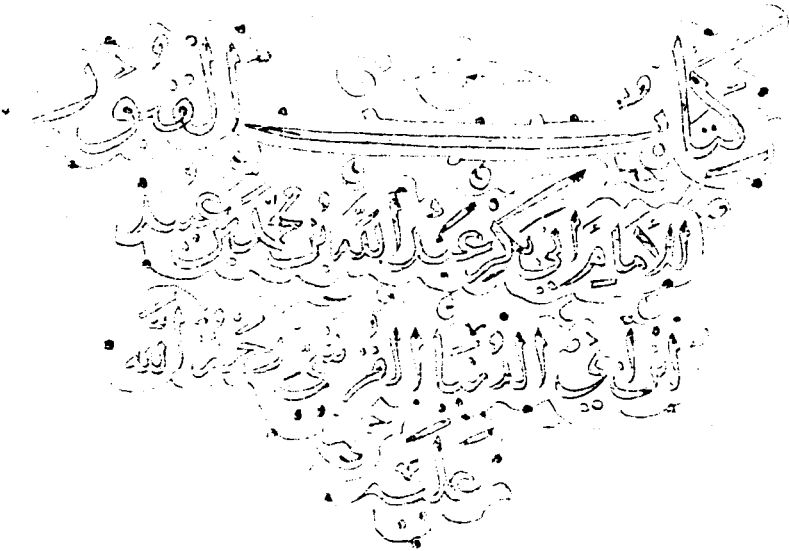 كتاب القبور
للإمام أبي بكر عبد الله بن محمد بن عبيد
ابن أبي الدنيا القرشي رحمة الله
عليه